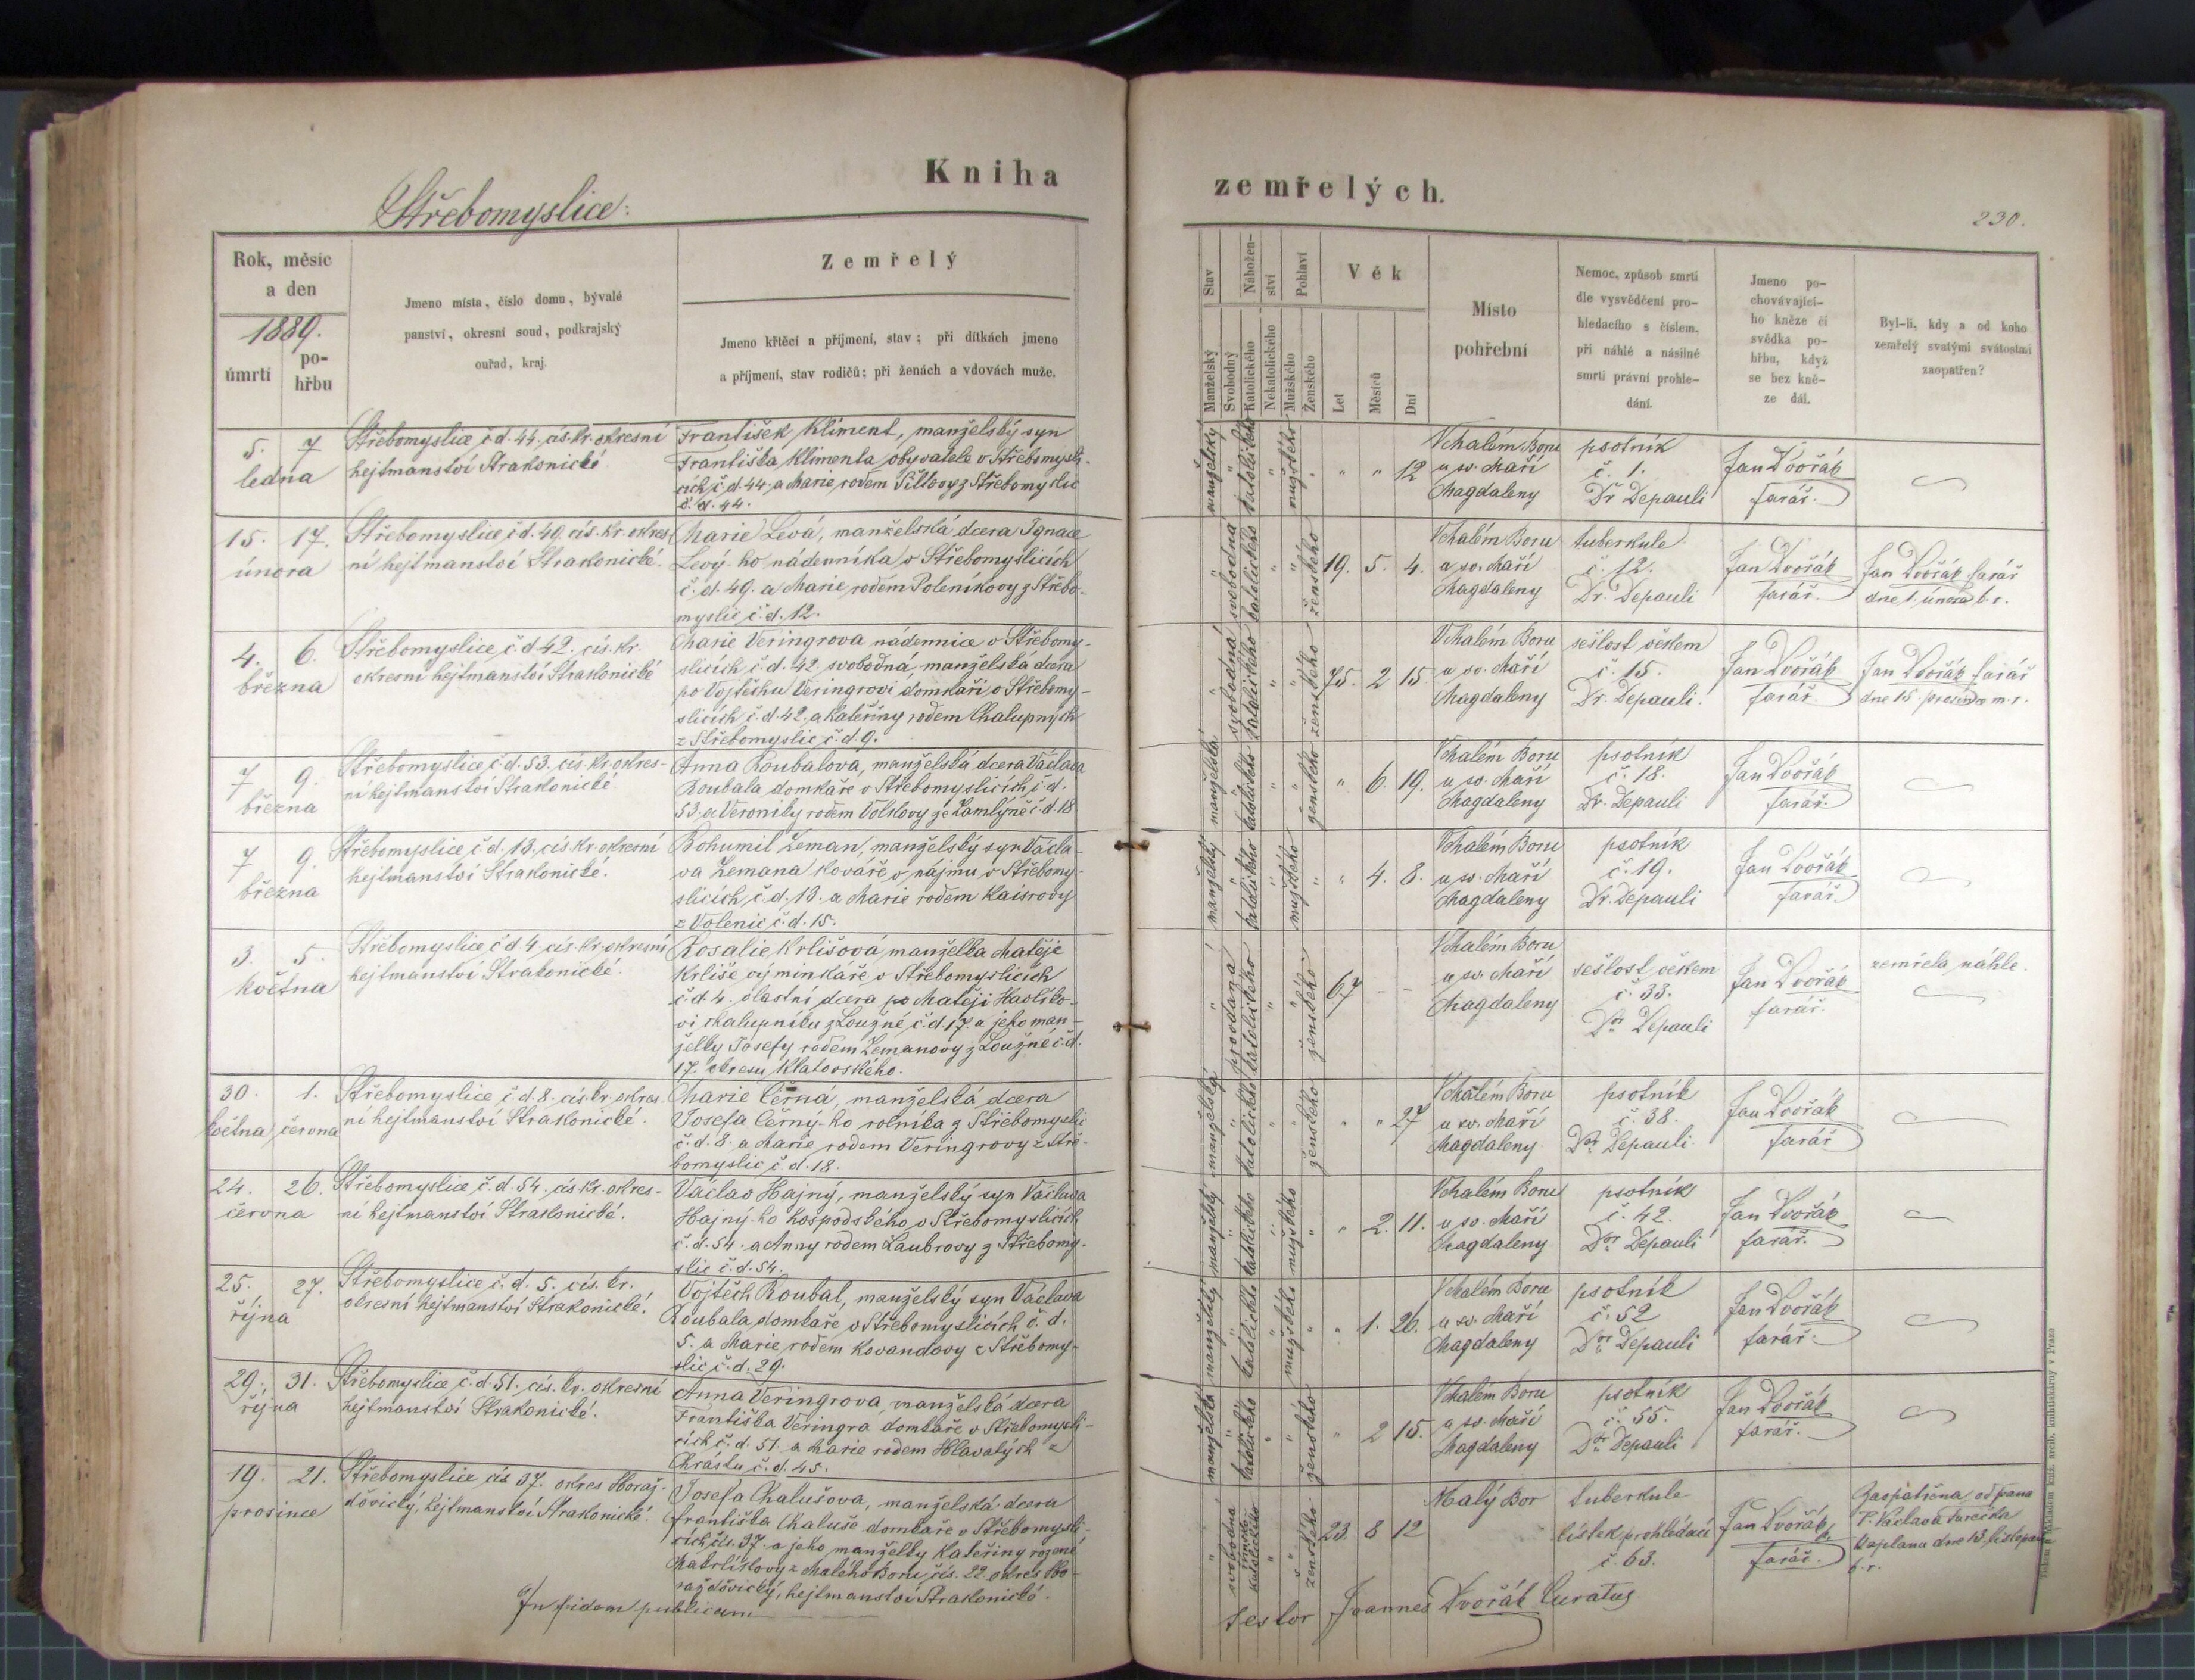 Kniha
Střebomyslice:
Rok, měsíc
a den
1889.
úmrtí
po-
hřbu
Jmeno místa, číslo domu, bývalé
panství, okresní soud, podkrajský
ouřad, kraj.
Zemřelý
Jmeno křtěcí a příjmení, stav; při dítkách jmeno
a příjmení, stav rodičů; při ženách a vdovách muže.
5. 7
ledna
Střebomyslice č d. 44. cís. kr. okresní
hejtmanství Strakonické
František Kliment, manželský syn
Františka Klimenta obyvatele v Střebomysli-
cích č. d. 44. a Marie rodem z Střebomyslic
č. d. 44.
15. 17.
února
Střebomyslice č d. 49. cís. kr. okres-
ní hejtmanství Strakonické.
Marie Levá, manželská dcera Ignace
Levý-ho nádenníka v Střebomyslicích
č. d. 49. a Marie rodem Poleníkovy z Střebo-
myslic č. d. 12.
4. 6.
března
Střebomyslice č d 42. cís. kr.
okresní hejtmanství Strakonické
Marie Veringrova nádennice v Střebomy-
slicích č. d. 42. svobodná manželská dcera
po Vojtěchu Veringrovi domkáři v Střebomy-
slicích č. d. 42. a Kateřiny rodem Chalupných
z Střebomyslic č. d. 9.
7 9.
března
Střebomyslice č d. 53. cís. kr. okres-
ní hejtmanství Strakonické.
Anna Roubalova, manželská dcera Václava
Roubala domkáře v Střebomyslicích č d.
53. a Veroniky rodem Volskovy ze Zamlýně č d. 18
7 9.
března
Střebomyslice č d. 13. cís. kr. okresní
hejtmanství Strakonické.
Bohumil Zeman, manželský syn Václa-
va Zemana kováře v nájmu v Střebomy-
slicích č. d. 13. a Marie rodem Kaisrovy
z Volenic č. d. 15.
3. 5.
května
Střebomyslice č d 4. cís. kr. okresní
hejtmanství Strakonické.
Rosalie Krlišová manželka Matěje
Krliše výminkáře v Střebomyslicích
č. d. 4. vlastní dcera po Matěji Havlíko-
vi chalupníku z Loužné č. d 17. a jeho man-
želky Josefy rodem Zemanovy z Loužné č. d.
17. okresu Klatovského.
30. 1.
května června
Střebomyslice č. d. 8. cís. kr. okres-
ní hejtmanství Strakonické.
Marie Černá, manželská dcera
Josefa Černý-ho rolníka z Střebomyslic
č. d. 8. a Marie rodem Veringrovy z Stře-
bomyslic č. d. 18.
24. 26.
června
Střebomyslice č. d. 54. cís. kr. okres-
ní hejtmanství Strakonické.
Václav Hajný, manželský syn Václava
Hajný-ho hospodského v Střebomyslicích
č. d. 54. a Anny rodem Laubrovy z Střebomy-
slic č. d. 54.
25. 27.
října
Střebomyslice č. d. 5. cís. kr.
okresní hejtmanství Strakonické.
Vojtěch Roubal, manželský syn Václava
Roubala domkáře v Střebomyslicích č. d.
5. a Marie rodem Kovandovy z Střebomy-
slic č. d. 29.
29. 31.
října
Střebomyslice č. d. 51. cís. kr. okresní
hejtmanství Strakonické.
Anna Veringrova, manželská dcera
Františka Veringra domkáře v Střebomysli-
cích č. d. 51. a Marie rodem Hlavatých z
Chrástu č. d. 45.
19. 21.
prosince
Střebomyslice čís 37. okres Horaž-
dovický, hejtmanství Strakonické.
Josefa Chalušova, manželská dcera
Františka Chaluše domkáře v Střebomysli-
cích čís. 37. a jeho manželky Kateřiny rozené
z Malého Boru čís. 22. okres Ho-
raždovický, hejtmanství Strakonické.
In fidem publicam
zemřelých.
230.
Stav
Nábožen-
ství
Pohlaví
Věk
Manželský
Svobodný
Katolického
Nekatolického
Mužského
Ženského
Let
Měsíců
Dní
Místo
pohřební
Nemoc, způsob smrti
dle vysvědčení pro-
hledacího s číslem,
při náhlé a násilné
smrti právní prohle-
dání.
Jmeno po-
chovávající-
ho kněze či
svědka po-
hřbu, když
se bez kně-
ze dál.
Byl-li, kdy a od koho
zemřelý svatými svátostmi
zaopatřen?
manželský " katolického " mužského " " " 12
V Malém Boru
u sv. Maří
Magdaleny
psotník
č. 1.
Dr Depauli
Jan Dvořák
farář.
" svobodná katolického " " ženského 19. 5. 4.
V Malém Boru
u sv. Maří
Magdaleny
tuberkule
č. 12.
Dr. Depauli
Jan Dvořák
farář.
Jan Dvořák farář
dne 1. února b. r.
" svobodná katolického " " ženského 75. 2 15
V Malém Boru
u sv. Maří
Magdaleny
sešlost věkem
č. 15.
Dr. Depauli.
Jan Dvořák
farář.
Jan Dvořák farář
dne 15. prosince m. r.
manželská " katolického " " ženského " 6. 19.
V Malém Boru
u sv. Maří
Magdaleny
psotník
č. 18.
Dr. Depauli
Jan Dvořák
farář.
manželský " katolického " mužského " " 4. 8.
V Malém Boru
u sv. Maří
Magdaleny
psotník
č. 19.
Dr. Depauli
Jan Dvořák
farář.
" provdaná katolického " " ženského 67 - -
V Malém Boru
u sv. Maří
Magdaleny
sešlost věkem
č. 33.
Dor Depauli
Jan Dvořák
farář.
zemřela náhle.
manželský " katolického " " ženského " " 27
V Malém Boru
u sv. Maří
Magdaleny.
psotník
č. 38.
Dor Depauli.
Jan Dvořák
farář
manželský " katolického " mužského " " 2. 11.
V Malém Boru
u sv. Maří
Magdaleny
psotník
č. 42.
Dor Depauli
Jan Dvořák
farář.
manželský " katolického " mužského " " 1. 26.
V Malém Boru
u sv. Maří
Magdaleny
psotník
č. 52
Dor Depauli
Jan Dvořák
farář.
manželská " katolického " " ženského " 2 15.
V Malém Boru
u sv. Maří
Magdaleny
psotník
č. 55.
Dor Depauli
Jan Dvořák
farář.
" svobodná katolického " " ženského 23. 8 12
Malý Bor
tuberkule
lístek prohlédací
č. 63.
Jan Dvořák,
farář.
Zaopatřena od pana
P. Václava Turečka
kaplana dne 13. listopadu
b. r.
testor Joannes Dvořák Curatus